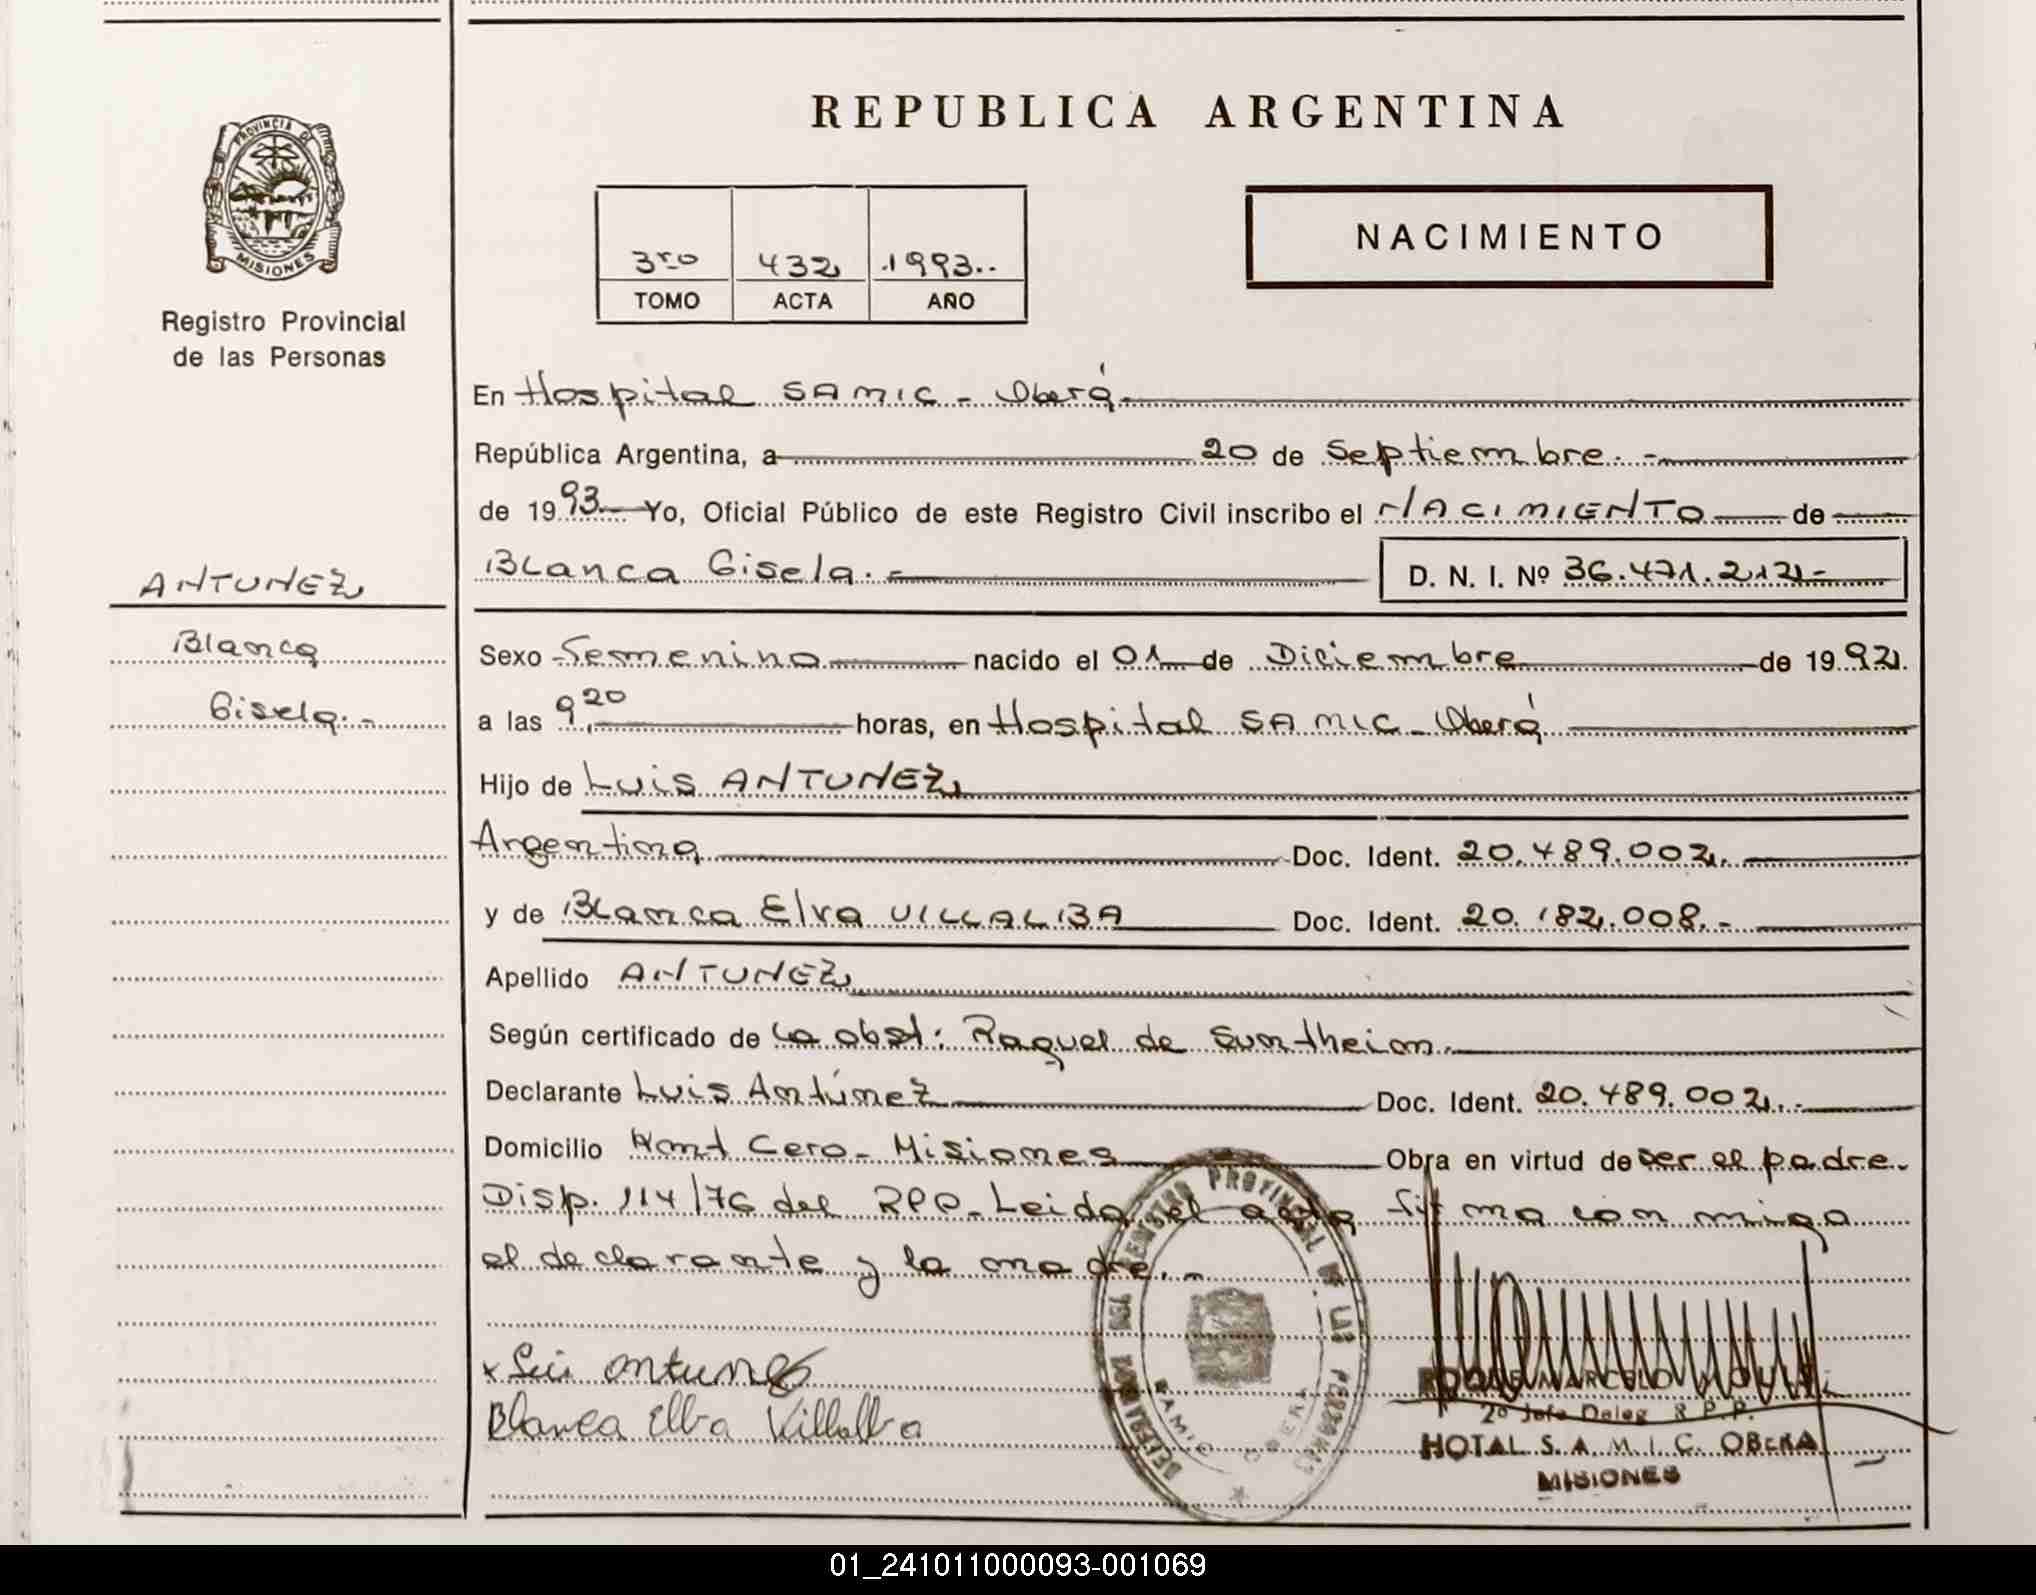 REPUBLICA ARGENTINA
PROVINCIA DE
MISIONES
Registro Provincial
de las Personas
3ro 432 1993
TOMO ACTA AÑO
NACIMIENTO
ANTUNEZ
Blanca
Gisela.-
En Hospital SAMIC - Oberá
República Argentina, a 20 de Septiembre.-
de 1993 Yo, Oficial Público de este Registro Civil inscribo el NACIMIENTO de
Blanca Gisela.- D. N. I. Nº 36.471.212-
Sexo Femenino nacido el 01 de Diciembre de 1992.
a las 9,20 horas, en Hospital SAMIC - Oberá
Hijo de Luis ANTUNEZ
Argentina Doc. Ident. 20.489.002.-
y de Blanca Elva VILLALBA Doc. Ident. 20.182.008.-
Apellido ANTUNEZ
Según certificado de La obst: Raquel de Suntheim.
Declarante Luis Antúnez Doc. Ident. 20.489.002.-
Domicilio Cero - Misiones Obra en virtud de ser el padre.
Disp. 114/76 del RPP - Leida el acta firma con migo
el declarante y la madre.-
x Luis Antunes
Blanca Elba Villalba
REGISTRO PROVINCIAL DE LAS PERSONAS
SAMIC OBERA
2º Jefe Deleg R.P.P.
HOTAL S.A.M.I.C. OBERA
MISIONES
01_241011000093-001069